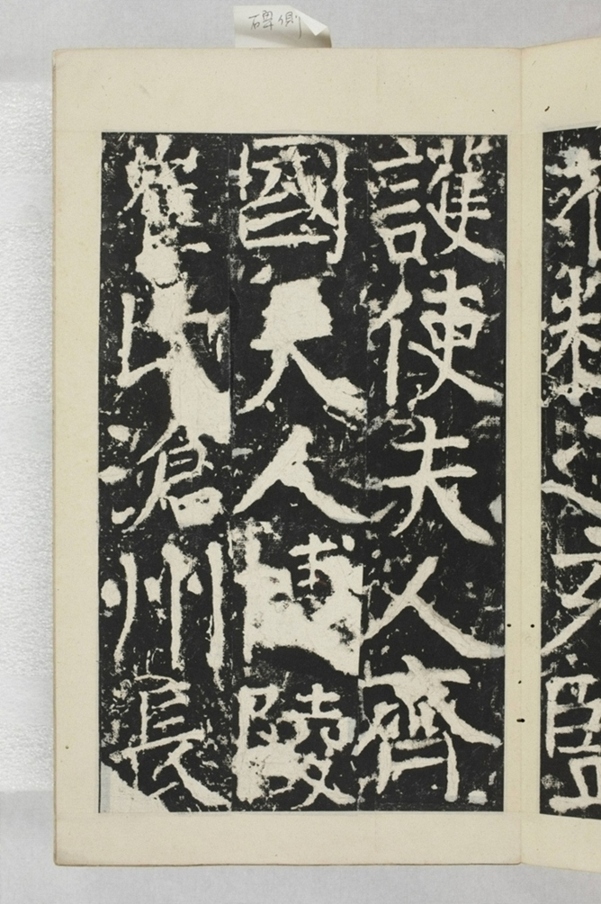 碑側
護使夫人齊
國夫人博陵
崔氏滄州長